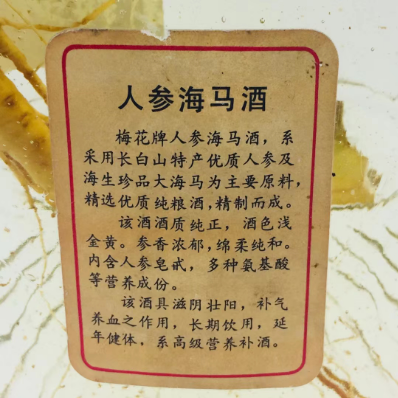 人参海马酒
梅花牌人参海马酒，系
采用长白山特产优质人参及
海生珍品大海马为主要原料，
精选优质纯粮酒，精制而成。
该酒酒质纯正，酒色浅
金黄。参香浓郁，绵柔纯和。
内含人参皂甙，多种氨基酸
等营养成份。
该酒具滋阴壮阳，补气
养血之作用，长期饮用，延
年健体，系高级营养补酒。